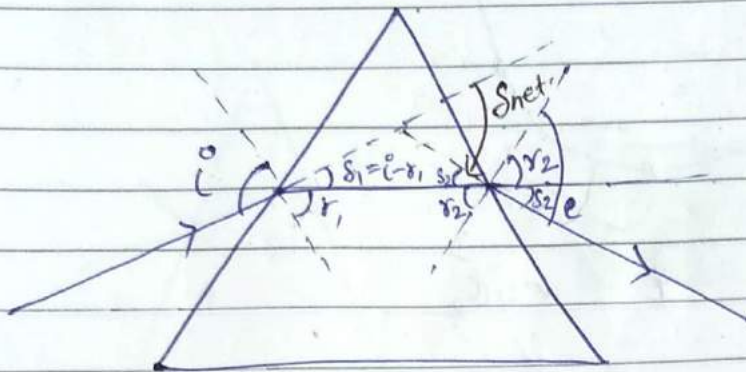 δnet.
i
δ₁=i-r₁
δ₂
r₂
r₁
r₂
δ₂
e